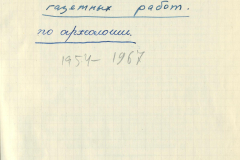 газетных работ.
по археологии.
1954-1967